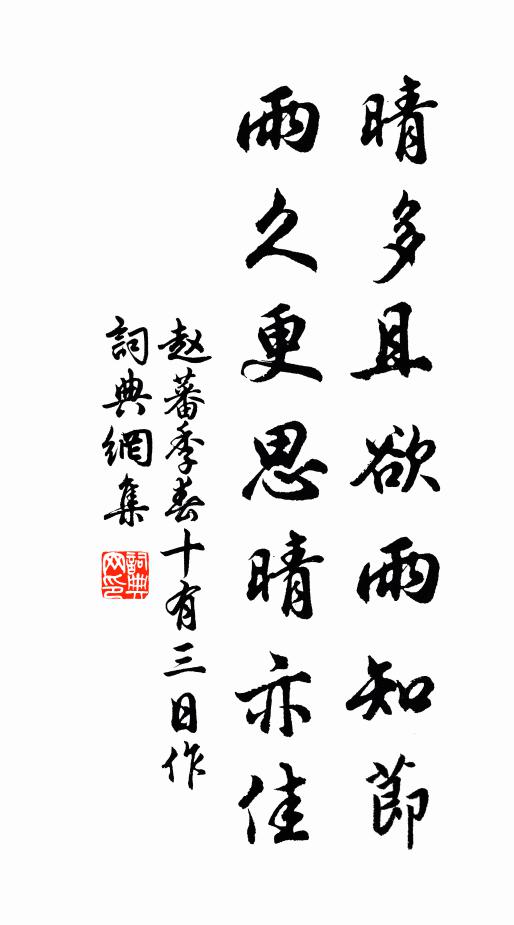 晴多且欲雨知節
雨久更思晴亦佳
赵蕃季春十有三日作
詞典網集
詞典網印